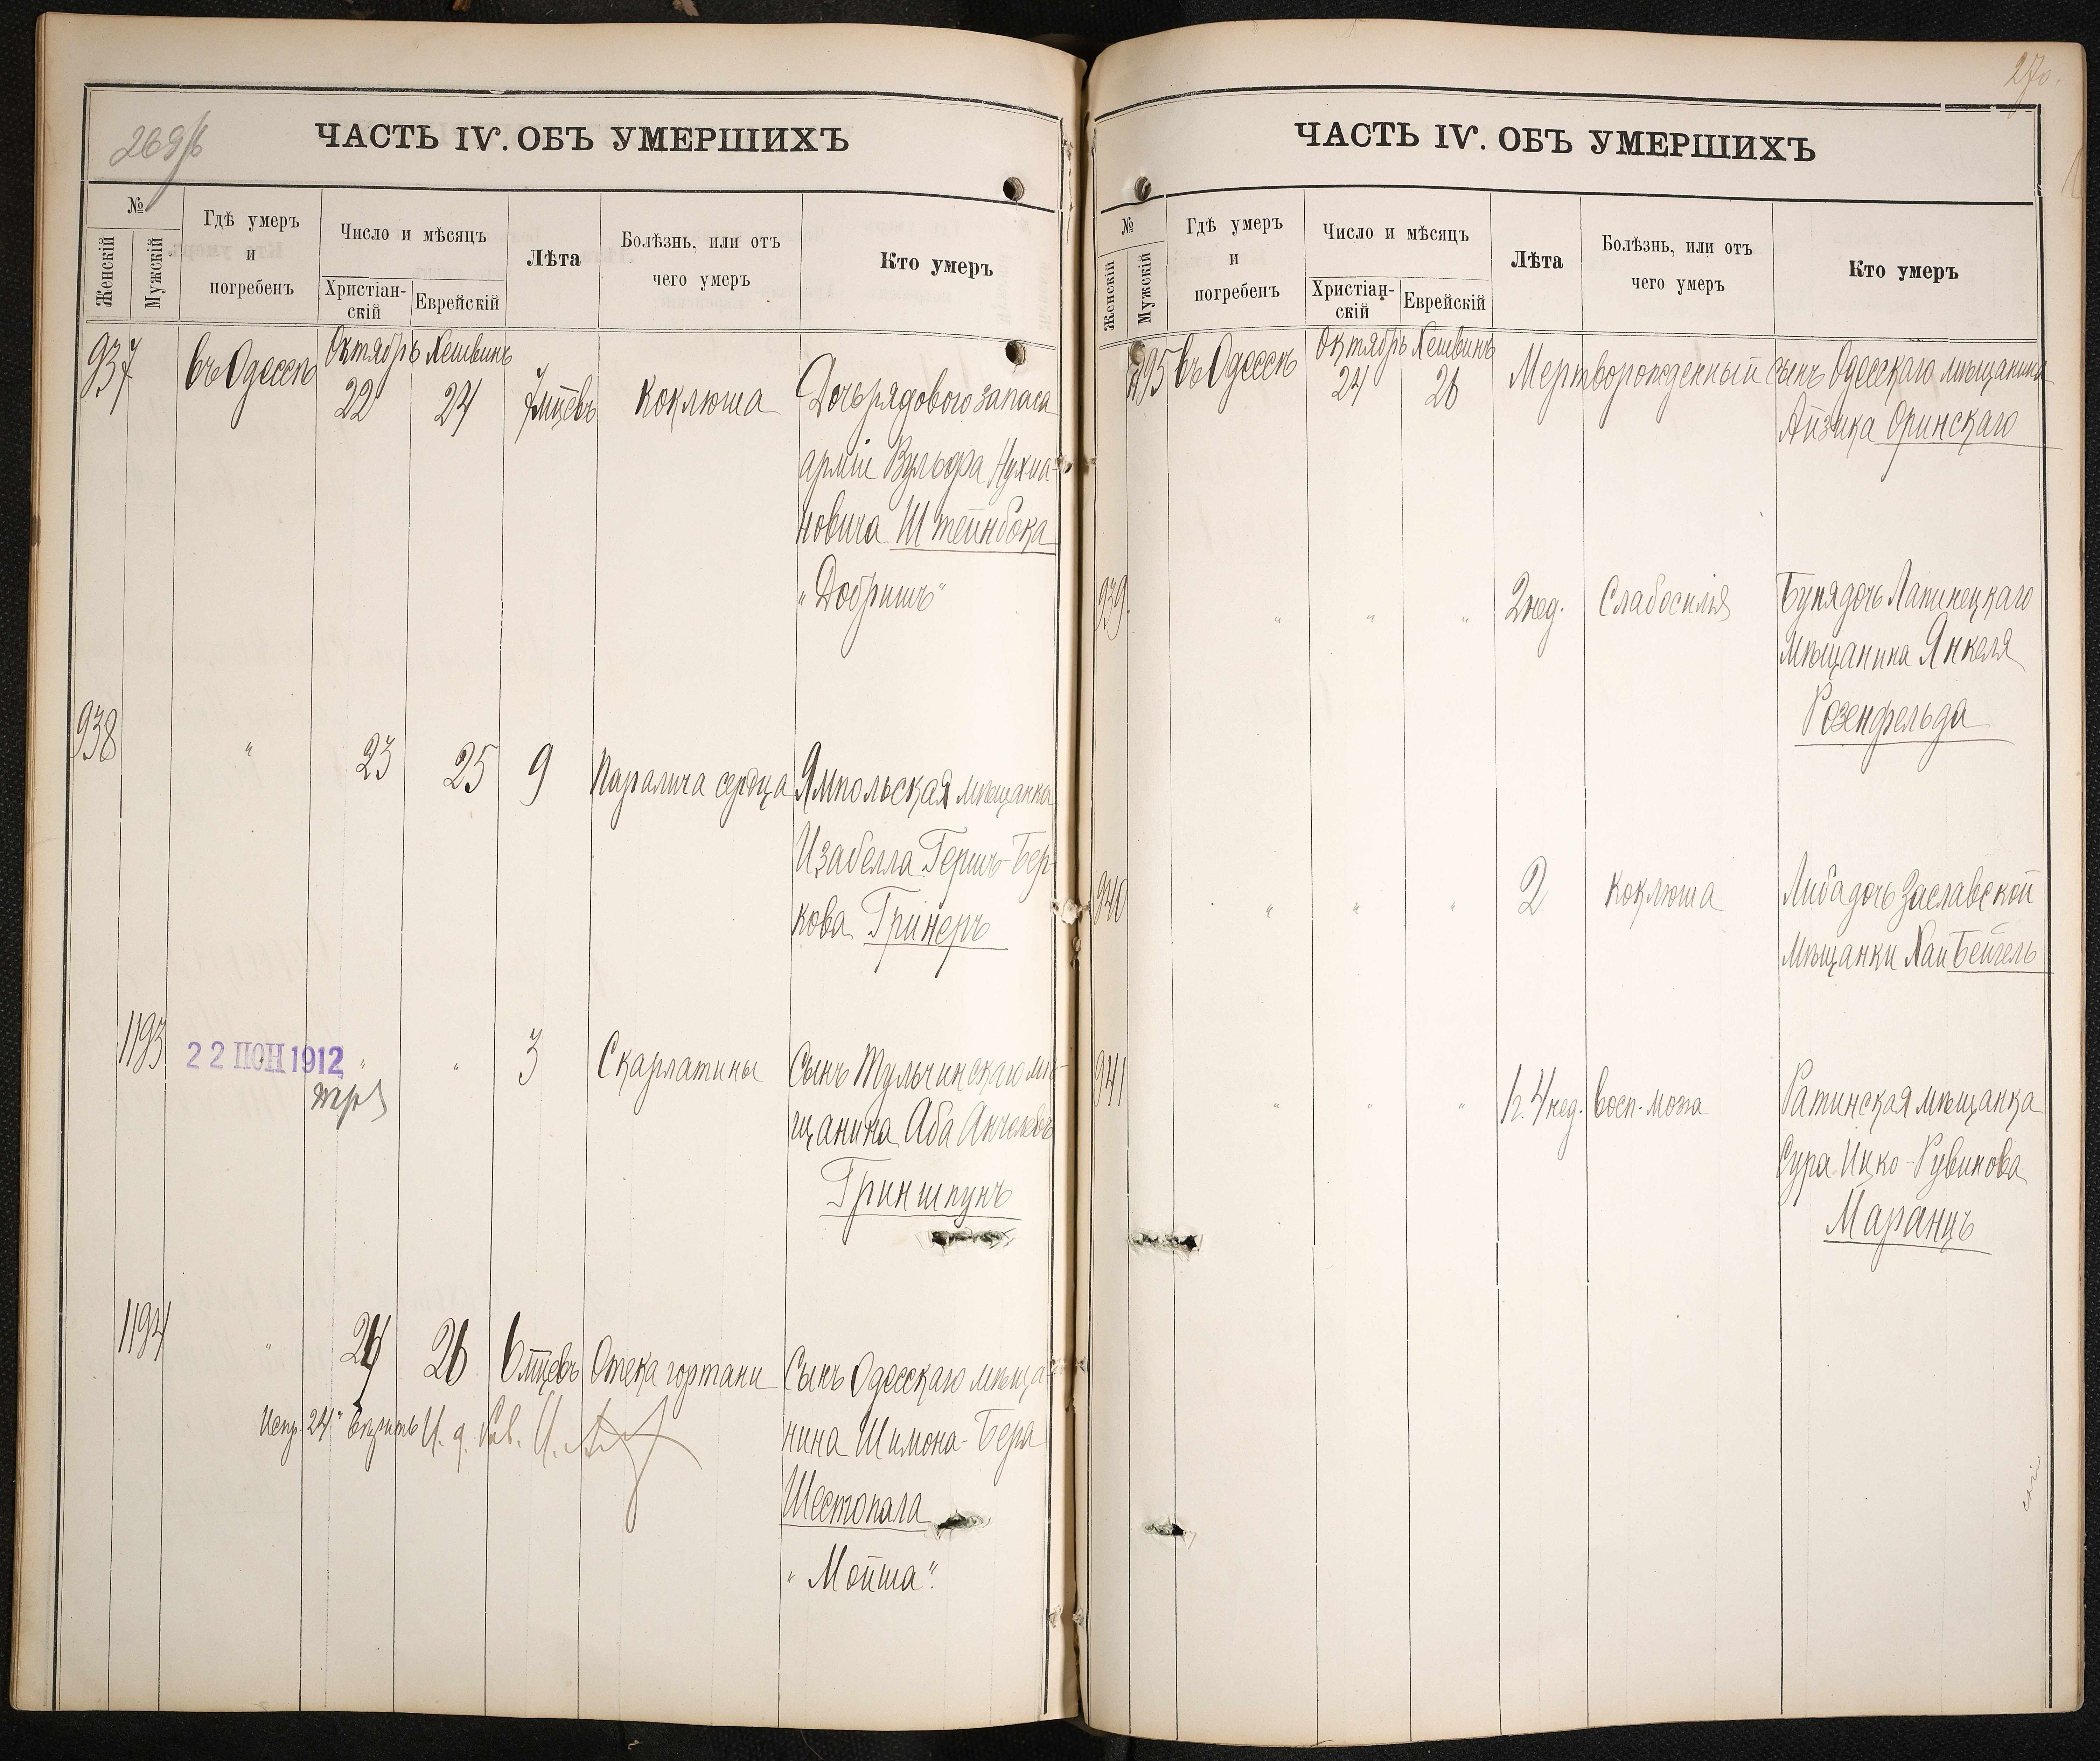 269/б
ЧАСТЬ IV. ОБЪ УМЕРШИХЪ
№
Женскій
Мужскій
Гдѣ умеръ
и
погребенъ
Число и мѣсяцъ
Христіан-
скій
Еврейскій
Лѣта
Болѣзнь, или отъ
чего умеръ
Кто умеръ
937 въ Одессѣ Октябрь Хешвинъ
22 24 7 мцевъ Коклюша Дочь рядового запаса
арміи Вульфа Нухи-
новича Штейнбока
"Добришъ"
938 " 23 25 9 Паралича сердца Ямпольская мѣщанка
Изабелла Гершъ-Бер-
кова Гринеръ
1193 22 ПОН 1912 " " 3 Скарлатины Сынъ Тульчинскаго мѣ-
щанина Аба
Гриншпунъ
1194 " 24 26 6 мцевъ Отека гортани Сынъ Одесскаго мѣща-
нина Шимона-Бера
Испр. 24 " И. д. Рав.
Шестопала
"Мойша".
270.
ЧАСТЬ IV. ОБЪ УМЕРШИХЪ
№
Женскій
Мужскій
Гдѣ умеръ
и
погребенъ
Число и мѣсяцъ
Христіан-
скій
Еврейскій
Лѣта
Болѣзнь, или отъ
чего умеръ
Кто умеръ
1195 въ Одессѣ Октябрь Хешвинъ
24 26 Мертворожденный сынъ Одесскаго мѣщанина
Айзика Оринскаго
939 " " " 2 нед. Слабосилія Буня дочь Лапинецкаго
мѣщанина Янкеля
Розенфельда
940 " " " 2 Коклюша Либа дочь Заславской
мѣщанки Хаи Бейгель
941 " " " 4 нед. Восп. мозга Ратинская мѣщанка
Сура Ицко-Рувинова
Маранцъ